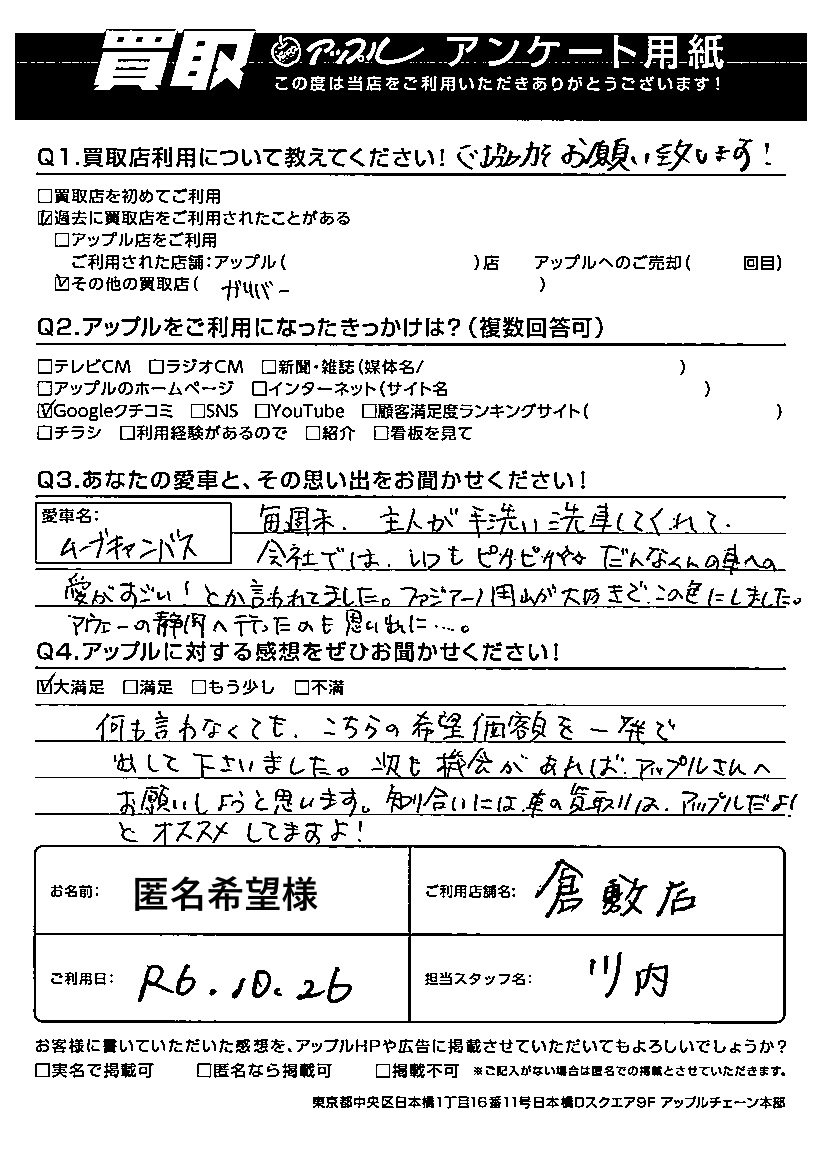 買取 アップル アンケート用紙
この度は当店をご利用いただきありがとうございます!
Q1.買取店利用について教えてください! ご協力をお願い致します!
□買取店を初めてご利用
☑過去に買取店をご利用されたことがある
□アップル店をご利用
ご利用された店舗:アップル( )店 アップルへのご売却( 回目)
☑その他の買取店( ガリバー )
Q2.アップルをご利用になったきっかけは?(複数回答可)
□テレビCM □ラジオCM □新聞・雑誌(媒体名/ )
□アップルのホームページ □インターネット(サイト名 )
☑Googleクチコミ □SNS □YouTube □顧客満足度ランキングサイト( )
□チラシ □利用経験があるので □紹介 □看板を見て
Q3.あなたの愛車と、その思い出をお聞かせください!
愛車名: ムーブキャンバス
毎週末、主人が手洗い洗車してくれて、
会社では、いつもピカピカ だんなくんの車への
愛がすごい!とか言われてました。ファジアーノ岡山が大好きで、この色にしました。
アウェーの静岡へ行ったのも思い出に…。
Q4.アップルに対する感想をぜひお聞かせください!
☑大満足 □満足 □もう少し □不満
何も言わなくても、こちらの希望価額を一発で
出して下さいました。次も機会があれば、アップルさんへ
お願いしようと思います。知り合いには、車の買取りは、アップルだよ!
とオススメしてますよ!
お名前: 匿名希望様 ご利用店舗名: 倉敷店
ご利用日: R6.10.26 担当スタッフ名: 川内
お客様に書いていただいた感想を、アップルHPや広告に掲載させていただいてもよろしいでしょうか?
□実名で掲載可 □匿名なら掲載可 □掲載不可 ※ご記入がない場合は匿名での掲載とさせていただきます。
東京都中央区日本橋1丁目16番11号日本橋Dスクエア9F アップルチェーン本部